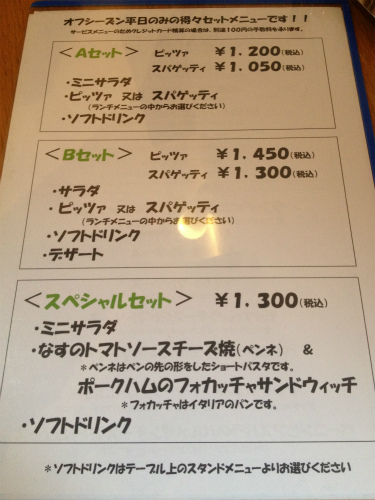 オフシーズン平日のみの得々セットメニューです！！
サービスメニューのためクレジットカード精算の場合は、別途100円の手数料を承ります。
＜Aセット＞ ピッツァ ￥1.200(税込)
スパゲッティ ￥1.050(税込)
・ミニサラダ
・ピッツァ 又は スパゲッティ
(ランチメニューの中からお選びください)
・ソフトドリンク
＜Bセット＞ ピッツァ ￥1.450(税込)
スパゲッティ ￥1.300(税込)
・サラダ
・ピッツァ 又は スパゲッティ
(ランチメニューの中からお選びください)
・ソフトドリンク
・デザート
＜スペシャルセット＞ ￥1.300(税込)
・ミニサラダ
・なすのトマトソースチーズ焼(ペンネ) &
＊ペンネはペンの先の形をしたショートパスタです。
ポークハムのフォカッチャサンドウィッチ
＊フォカッチャはイタリアのパンです。
・ソフトドリンク
＊ソフトドリンクはテーブル上のスタンドメニューよりお選びください